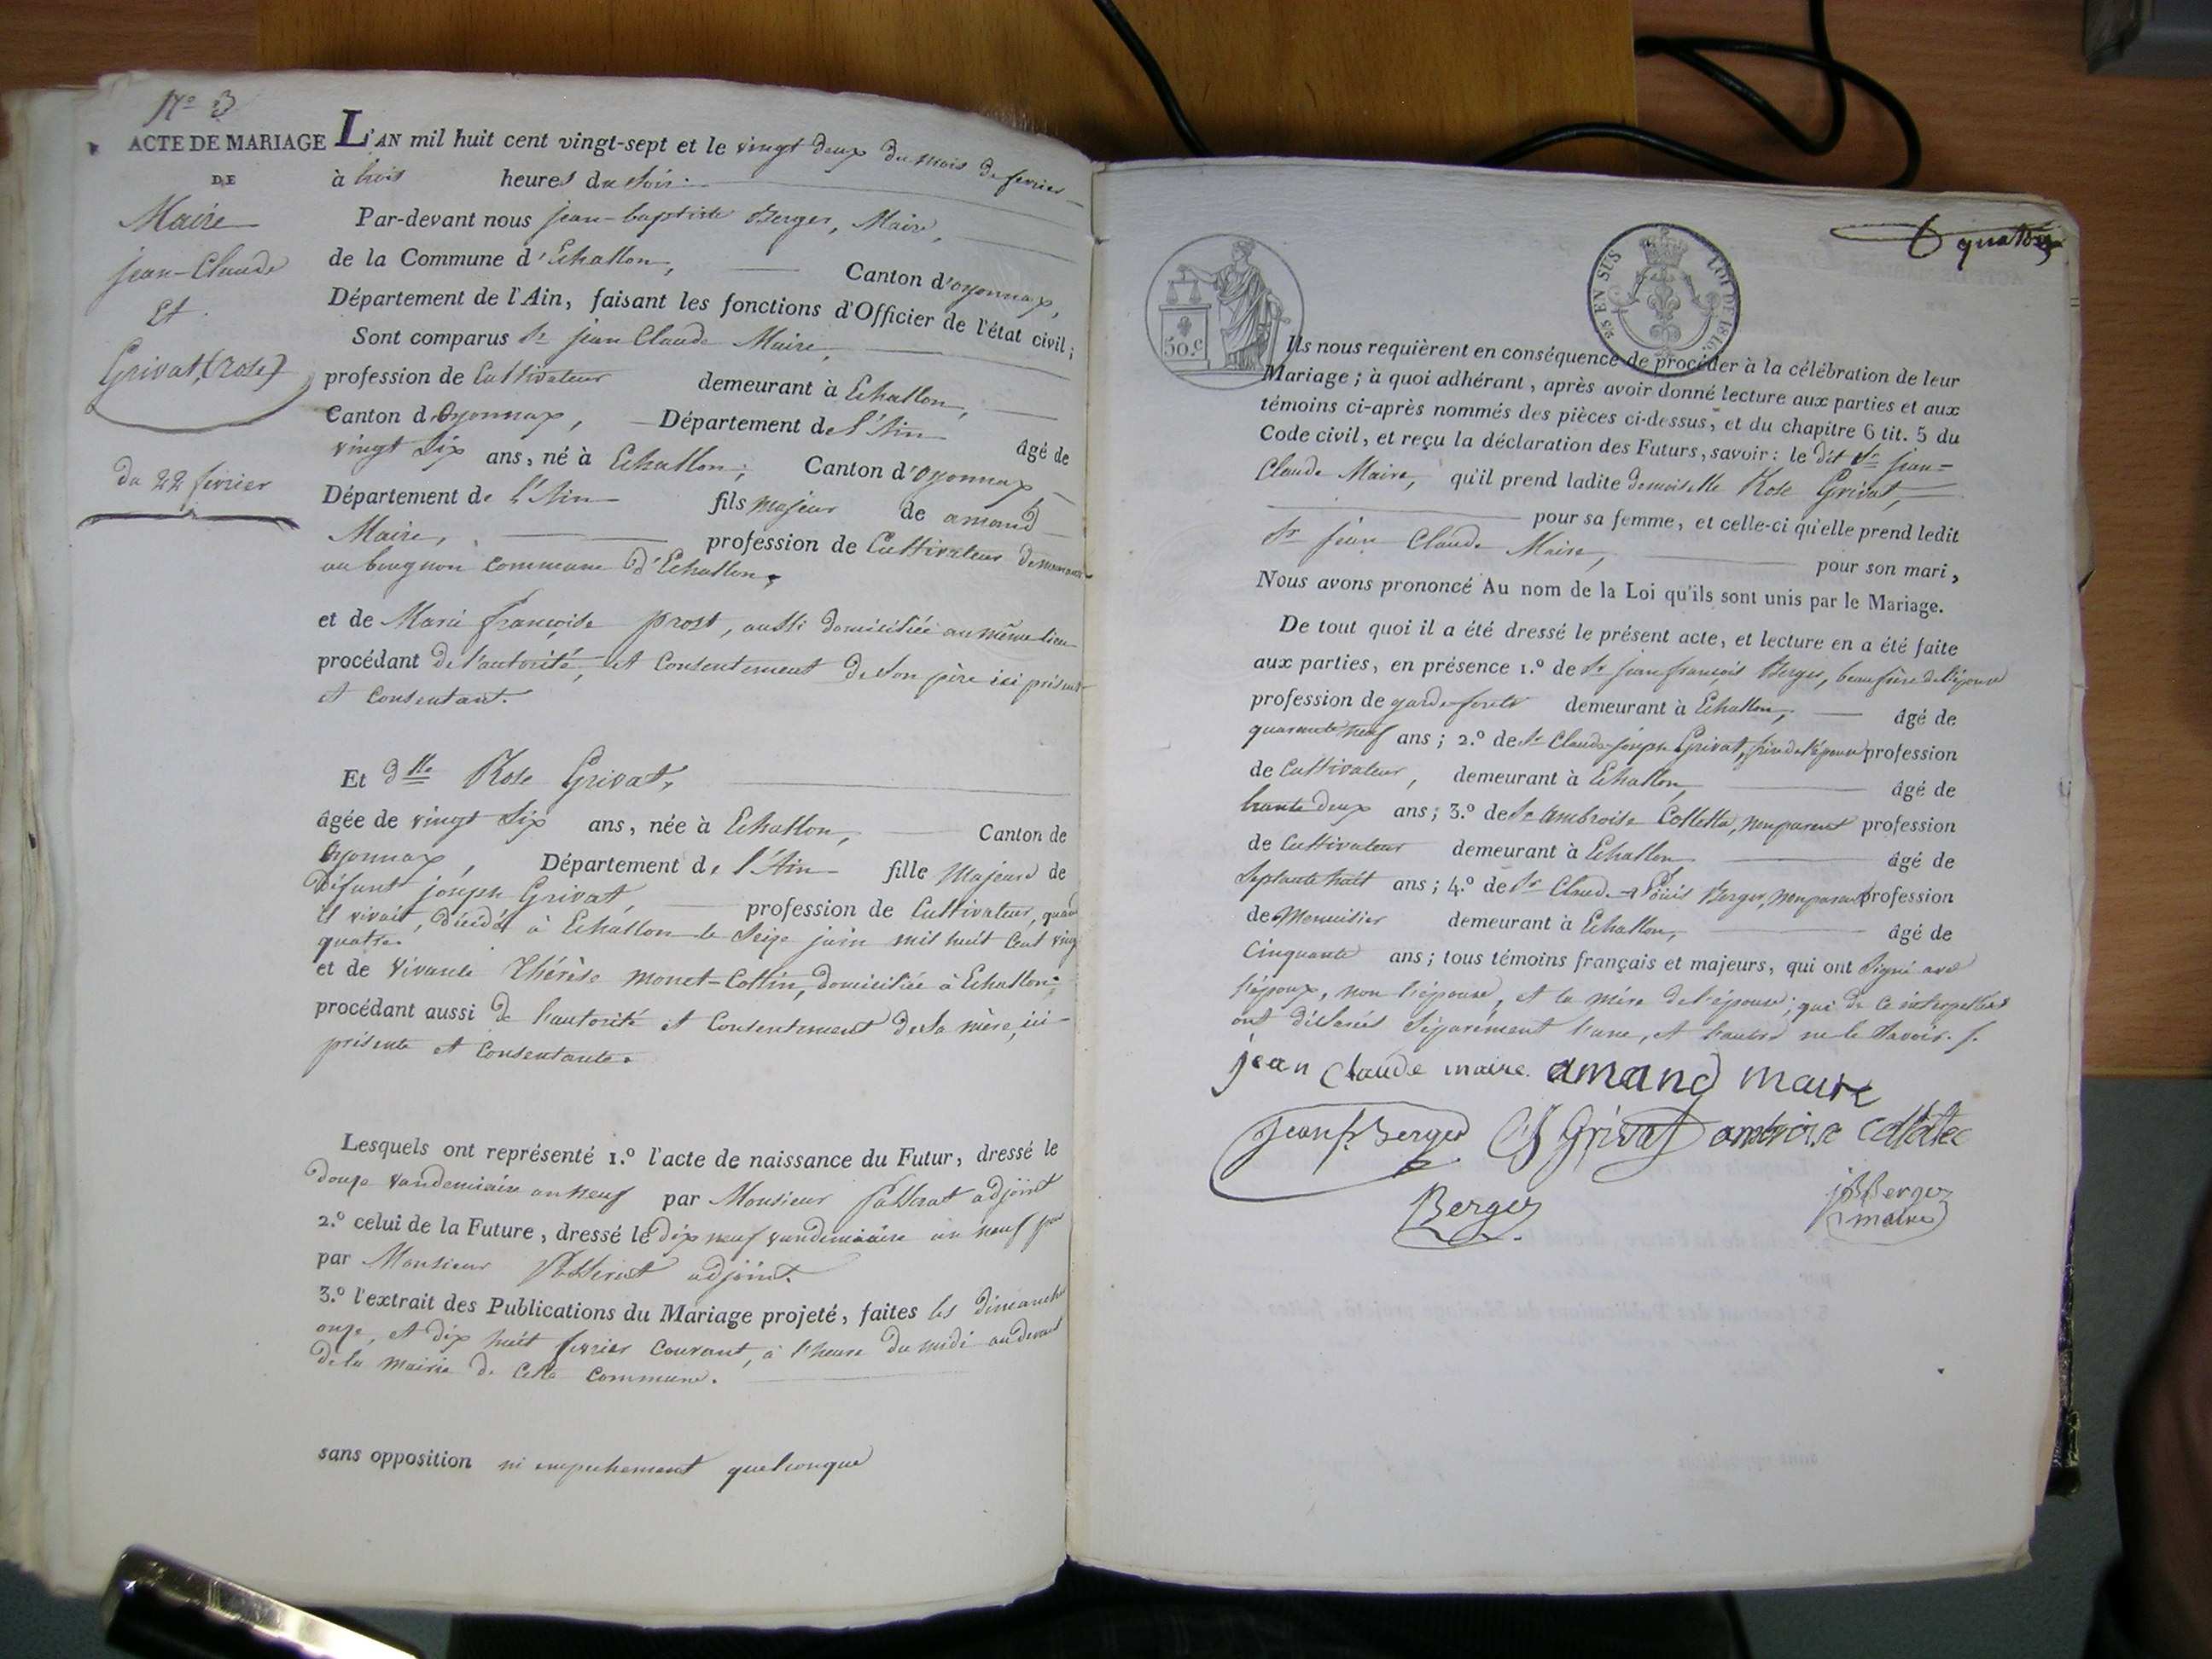 N.o 3
ACTE DE MARIAGE
DE
Maire
jean-Claude
Et
Grivat, (Rose)
du 22 fevrier
L'AN mil huit cent vingt-sept et le vingt deux du mois de fevrier
à trois heures du soir.
Par-devant nous jean-baptiste Berger, Maire,
de la Commune d'Echallon, Canton d'oyonnax,
Département de l'Ain, faisant les fonctions d'Officier de l'état civil;
Sont comparus Sr jean Claude Maire,
profession de Cultivateur demeurant à Echallon,
Canton d'Oyonnax, Département de l'Ain âgé de
vingt six ans, né à Echallon, Canton d'oyonnax,
Département de l'Ain fils majeur de amand
Maire, profession de Cultivateur
au commune d'Echallon,
et de Marie françoise prost, aussi domiciliée au même lieu
procédant de l'autorité, et Consentement de son père ici présent
et Consentant.
Et dlle Rose Grivat,
âgée de vingt six ans, née à Echallon, Canton de
Oyonnax, Département de l'Ain fille Majeure de
Défunt joseph Grivat, profession de Cultivateur, quand
il vivait, décédé à Echallon le seize juin mil huit cent vingt
quatre.
et de vivante Thérèse monet-Collin, domiciliée à Echallon,
procédant aussi de l'autorité et Consentement de sa mère, ici
présente et Consentante.
Lesquels ont représenté 1.o l'acte de naissance du Futur, dressé le
douze vandemiaire an neuf par Monsieur Passerat adjoint
2.o celui de la Future, dressé le dix neuf vandemiaire an neuf par
par Monsieur Passerat adjoint.
3.o l'extrait des Publications du Mariage projeté, faites les dimanche
onze, et dix huit fevrier Courant, à l'heure du midi au devant
de la mairie de cette commune.
sans opposition ni empechement quelconque
50.c
25 EN SUS
LOI DE 1816.
Ils nous requièrent en conséquence de procéder à la célébration de leur
Mariage; à quoi adhérant, après avoir donné lecture aux parties et aux
témoins ci-après nommés des pièces ci-dessus, et du chapitre 6 tit. 5 du
Code civil, et reçu la déclaration des Futurs, savoir: le dit Sr jean=
Claude Maire, qu'il prend ladite demoiselle Rose Grivat,
pour sa femme, et celle-ci qu'elle prend ledit
Sr jean Claude Maire, pour son mari,
Nous avons prononcé Au nom de la Loi qu'ils sont unis par le Mariage.
De tout quoi il a été dressé le présent acte, et lecture en a été faite
aux parties, en présence 1.o de Sr jean françois Berger, beau frère de l'épouse
profession de garde-forets demeurant à Echallon, âgé de
quarante neuf ans; 2.o de Sr Claude-joseph Grivat, frère de l'épouse profession
de Cultivateur, demeurant à Echallon, âgé de
trante deux ans; 3.o de Sr ambroise Colletta, non parent profession
de Cultivateur demeurant à Echallon âgé de
Septante huit ans; 4.o de Sr Claude-Louis Berger, non parent profession
de Menuisier demeurant à Echallon, âgé de
Cinquante ans; tous témoins français et majeurs, qui ont signé avec
l'époux, non l'épouse, et la mère de l'épouse; qui de ce interpellées
ont déclarés séparément l'une, et l'autre ne le savoir.
jean Claude maire amand maire
jean f. Berger CJ Grivat ambroise
Berger
jB Berger
maire